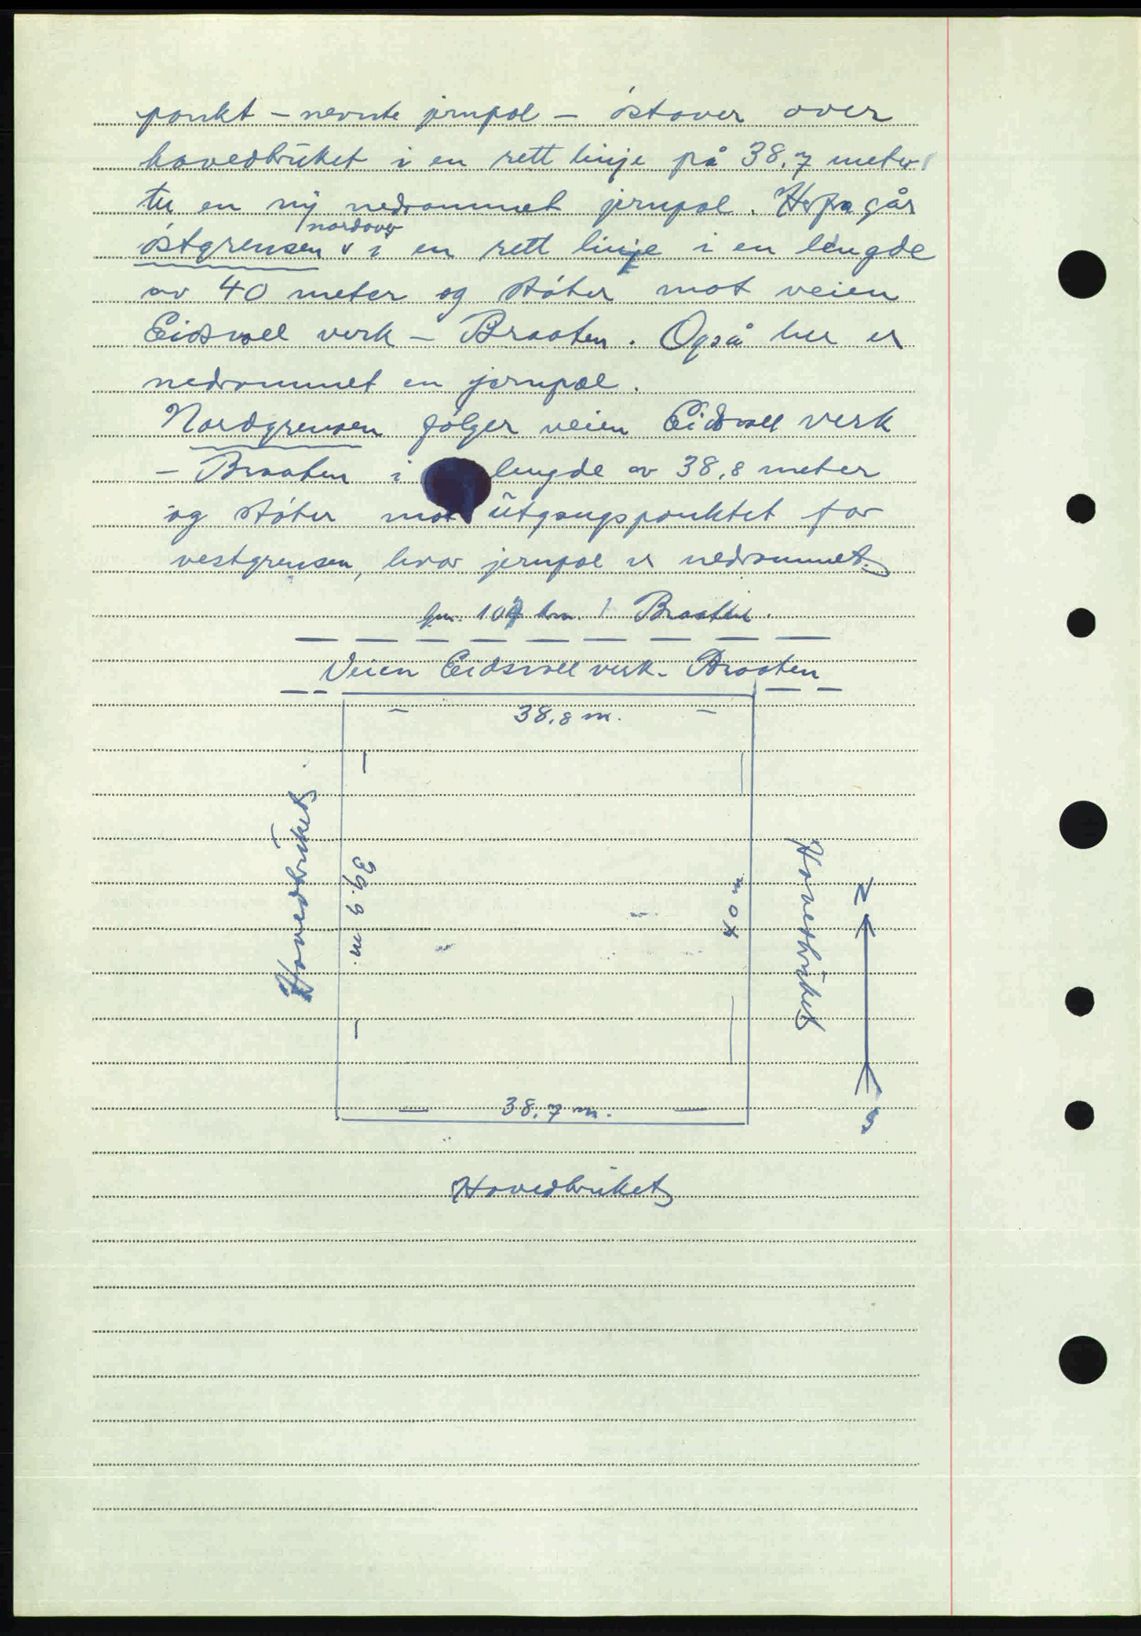 punkt – nevnte jernpol – östover over
hovedbruket i en rett linje på 38,7 meter
til en ny nedrammet jernpol. Herfra går
östgrensen nordover i en rett linje i en lengde
av 40 meter og stöter mot veien
Eidsvoll verk – Braaten. Også her er
nedrammet en jernpæl.
Nordgrensen fölger veien Eidsvoll verk
– Braaten i lengde av 38,8 meter
og stöter mot ūtgangspunktet for
vestgrensen, hvor jernpol er nedrammet.
107 Braaten.
Veien Eidsvoll verk – Braaten
38,8 m.
Hovedbrūket
39.9 m.
40 m
Hovedbrūket
N
S
38,7 m.
Hovedbruket